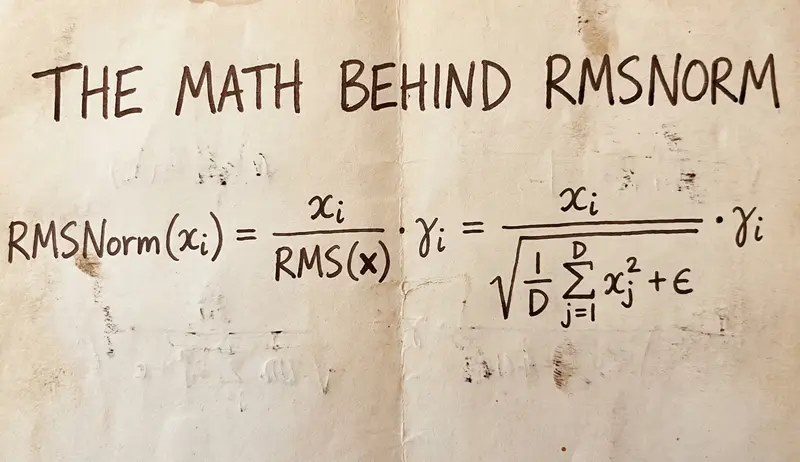 THE MATH BEHIND RMSNORM
RMSNorm(xᵢ) = xᵢ / RMS(x) · γᵢ = xᵢ / √(1/D ∑ⱼ₌₁ᴰ xⱼ² + ϵ) · γᵢ